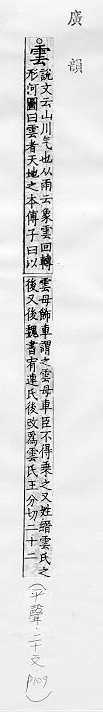 廣韻
雲
說文云山川气也从雨云象雲回轉
形河圖曰雲者天地之本傅子曰以
雲母飾車謂之雲母車臣不得乘之又姓縉雲氏之
後又後魏書宥連氏後改爲雲氏王分切二十二
(平聲·二十文
P109